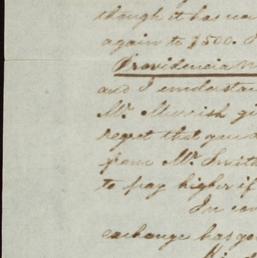 though it has
again to $500.
Providencia
and I understa
Mr.
regret that
from Mr. Smith
to pay higher if
In con
exchange has go